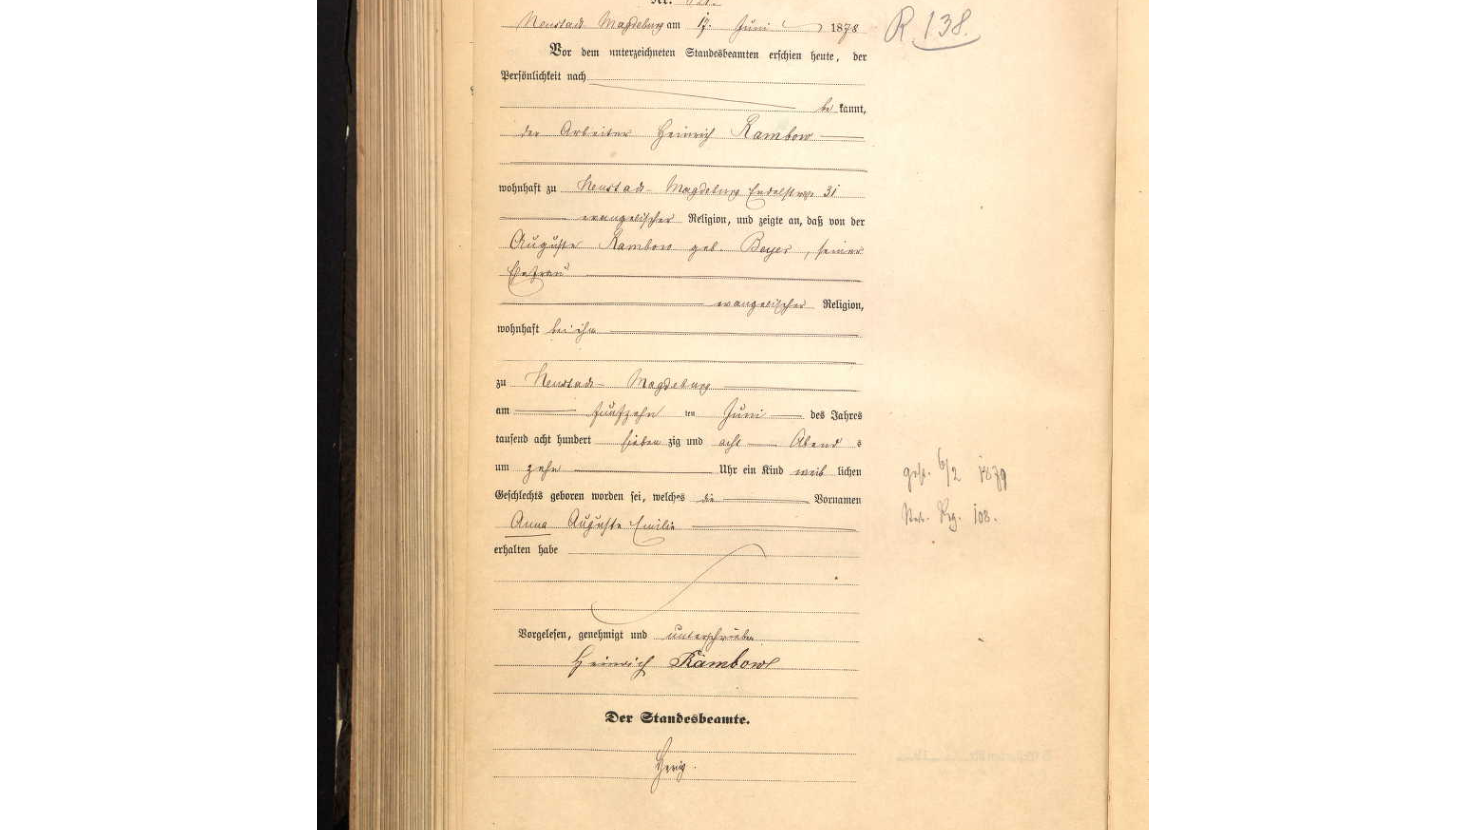 Nr.
Neustadt Magdeburg am 17. Juni 1878
R 138.
Vor dem unterzeichneten Standesbeamten erschien heute, der
Persönlichkeit nach
be kannt,
der Arbeiter Heinrich Rambow
wohnhaft zu Neustadt-Magdeburg 31
evangelischer Religion, und zeigte an, daß von der
Auguste Rambow geb. Beyer, seiner
Ehefrau
evangelischer Religion,
wohnhaft bei ihm
zu Neustadt-Magdeburg
am fünfzehn ten Juni des Jahres
tausend acht hundert sieben zig und acht Abend s
um zehn Uhr ein Kind weib lichen
Geschlechts geboren worden sei, welches die Vornamen
Anna Auguste Emilie
erhalten habe
gest. 6/2 1879
Reg. 108.
Vorgelesen, genehmigt und unterschrieben
Heinrich Rambow
Der Standesbeamte.